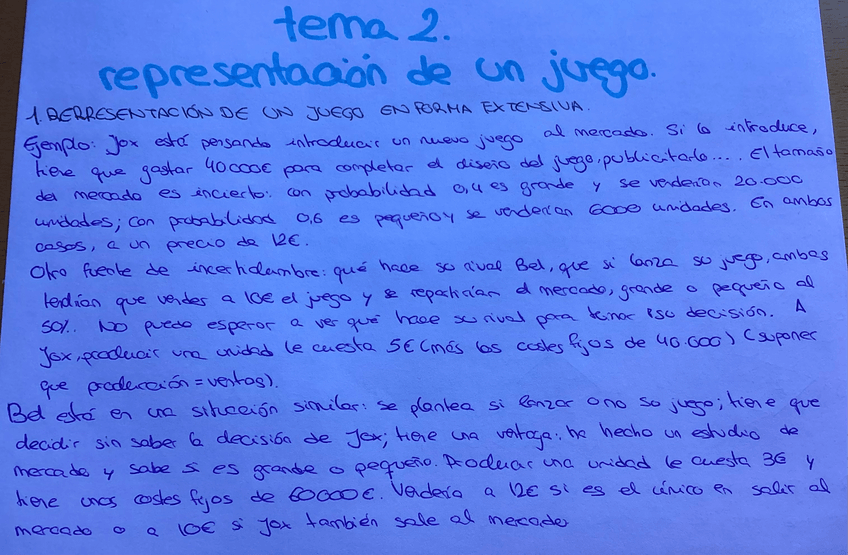 tema 2.
representación de un juego.
1. REPRESENTACIÓN DE UN JUEGO EN FORMA EXTENSIVA.
Ejemplo: Jox está pensando introducir un nuevo juego al mercado. Si lo introduce,
tiene que gastar 40000€ para completar el diseño del juego, publicitarlo.... El tamaño
del mercado es incierto: con probabilidad 0,4 es grande y se venderían 20.000
unidades; con probabilidad 0,6 es pequeño y se venderían 6000 unidades. En ambos
casos, a un precio de 12€.
Otra fuente de incertidumbre: qué hace su rival Bel, que si lanza su juego, ambas
tendrían que vender a 10€ el juego y se repartirían el mercado, grande o pequeño al
50%. No puedo esperar a ver qué hace su rival para tomar su decisión. A
Jox, producir una unidad le cuesta 5€ (más los costes fijos de 40.000) (suponer
que producción = ventas).
Bel está en una situación similar: se plantea si lanzar o no su juego; tiene que
decidir sin saber la decisión de Jox; tiene una ventaja: ha hecho un estudio de
mercado y sabe si es grande o pequeño. Producir una unidad le cuesta 3€ y
tiene unos costes fijos de 60000€. Vendería a 12€ si es el único en salir al
mercado o a 10€ si Jox también sale al mercado